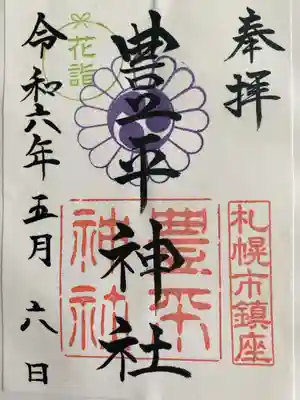 奉拝
札幌市鎮座
豊平神社
豊平
神社
花詣
令和六年五月六日